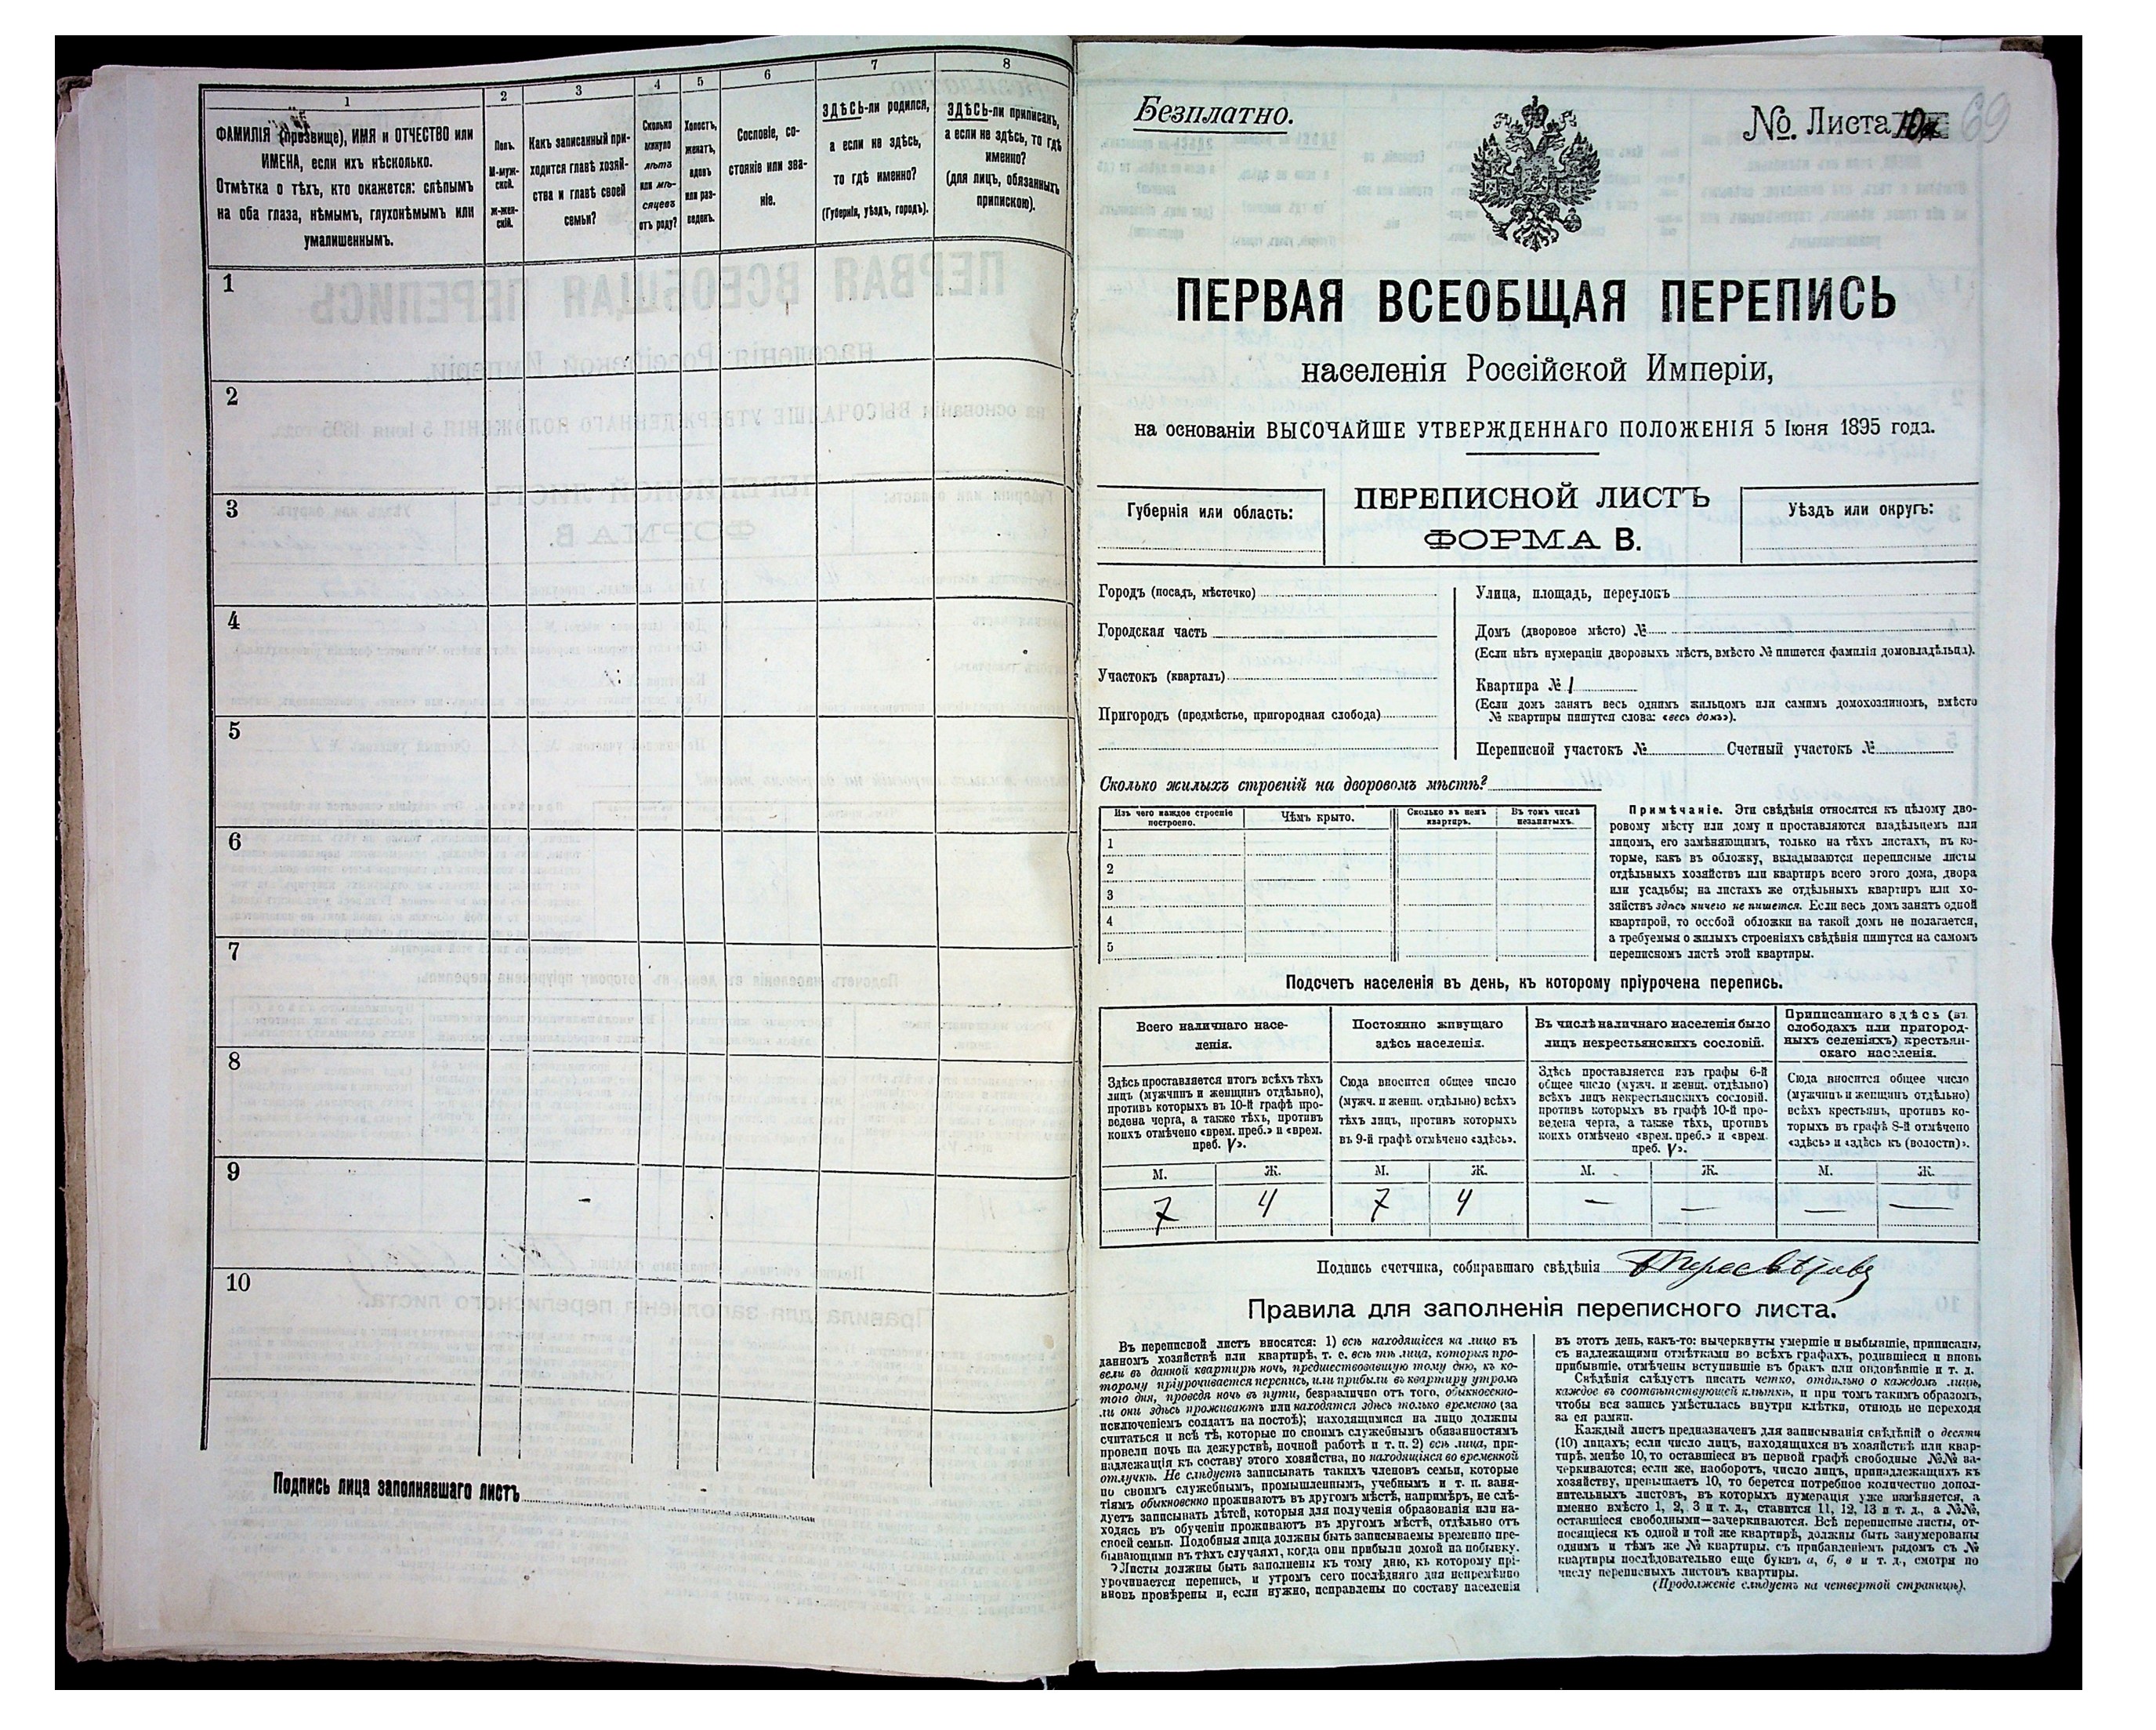 1
2
3
4
5
6
7
8
ФАМИЛІЯ (прозвище), ИМЯ и ОТЧЕСТВО или
ИМЕНА, если ихъ нѣсколько.
Отмѣтка о тѣхъ, кто окажется: слѣпымъ
на оба глаза, нѣмымъ, глухонѣмымъ или
умалишеннымъ.
Полъ.
М-муж-
ской.
Ж-жен-
скій.
Какъ записанный при-
ходится главѣ хозяй-
ства и главѣ своей
семьи?
Сколько
минуло
лѣтъ
или мѣ-
сяцевъ
отъ роду?
Холостъ,
женатъ,
вдовъ
или раз-
веденъ.
Сословіе, со-
стояніе или зва-
ніе.
ЗДѢСЬ-ли родился,
а если не здѣсь,
то гдѣ именно?
(Губернія, уѣздъ, городъ).
ЗДѢСЬ-ли приписанъ,
а если не здѣсь, то гдѣ
именно?
(для лицъ, обязанныхъ
припискою).
1
2
3
4
5
6
7
8
9
10
Подпись лица заполнявшаго листъ
Безплатно.
№ Листа
69
ПЕРВАЯ ВСЕОБЩАЯ ПЕРЕПИСЬ
населенія Россійской Имперіи,
на основаніи ВЫСОЧАЙШЕ УТВЕРЖДЕННАГО ПОЛОЖЕНІЯ 5 Іюня 1895 года.
Губернія или область:
ПЕРЕПИСНОЙ ЛИСТЪ
ФОРМА В.
Уѣздъ или округъ:
Городъ (посадъ, мѣстечко)
Городская часть
Участокъ (кварталъ)
Пригородъ (предмѣстье, пригородная слобода)
Улица, площадь, переулокъ
Домъ (дворовое мѣсто) №
(Если нѣтъ нумераціи дворовыхъ мѣстъ, вмѣсто № пишется фамилія домовладѣльца).
Квартира № 1
(Если домъ занятъ весь однимъ жильцомъ или самимъ домохозяиномъ, вмѣсто
№ квартиры пишутся слова: «весь домъ»).
Переписной участокъ № Счетный участокъ №
Сколько жилыхъ строеній на дворовомъ мѣстѣ?
Изъ чего каждое строеніе
построено.
Чѣмъ крыто.
Сколько въ немъ
квартиръ.
Въ томъ числѣ
незанятыхъ.
1
2
3
4
5
Примѣчаніе. Эти свѣдѣнія относятся къ цѣлому дво-
ровому мѣсту или дому и проставляются владѣльцемъ или
лицомъ, его замѣняющимъ, только на тѣхъ листахъ, въ ко-
торые, какъ въ обложку, вкладываются переписные листы
отдѣльныхъ хозяйствъ или квартиръ всего этого дома, двора
или усадьбы; на листахъ же отдѣльныхъ квартиръ или хо-
зяйствъ здѣсь ничего не пишется. Если весь домъ занятъ одной
квартирой, то особой обложки на такой домъ не полагается,
а требуемыя о жилыхъ строеніяхъ свѣдѣнія пишутся на самомъ
переписномъ листѣ этой квартиры.
Подсчетъ населенія въ день, къ которому пріурочена перепись.
Всего наличнаго насе-
ленія.
Постоянно живущаго
здѣсь населенія.
Въ числѣ наличнаго населенія было
лицъ некрестьянскихъ сословій.
Приписаннаго здѣсь (въ
слободахъ или пригород-
ныхъ селеніяхъ) крестьян-
скаго населенія.
Здѣсь проставляется итогъ всѣхъ тѣхъ
лицъ (мужчинъ и женщинъ отдѣльно),
противъ которыхъ въ 10-й графѣ про-
ведена черта, а также тѣхъ, противъ
коихъ отмѣчено «врем. преб.» и «врем.
преб. V».
Сюда вносится общее число
(мужч. и женщ. отдѣльно) всѣхъ
тѣхъ лицъ, противъ которыхъ
въ 9-й графѣ отмѣчено «здѣсь».
Здѣсь проставляется изъ графы 6-й
общее число (мужч. и женщ. отдѣльно)
всѣхъ лицъ некрестьянскихъ сословій.
противъ которыхъ въ графѣ 10-й про-
ведена черта, а также тѣхъ, противъ
коихъ отмѣчено «врем. преб.» и «врем.
преб. V».
Сюда вносится общее число
(мужчинъ и женщинъ отдѣльно)
всѣхъ крестьянъ, противъ ко-
торыхъ въ графѣ 8-й отмѣчено
«здѣсь» и «здѣсь къ (волости)».
М. Ж. М. Ж. М. Ж. М. Ж.
7 4 7 4 — — — —
Подпись счетчика, собиравшаго свѣдѣнія
Правила для заполненія переписного листа.
Въ переписной листъ вносятся: 1) всѣ находящіеся на лицо въ
данномъ хозяйствѣ или квартирѣ, т. е. всѣ тѣ лица, которыя про-
вели въ данной квартирѣ ночь, предшествовавшую тому дню, къ ко-
торому пріурочивается перепись, или прибыли въ квартиру утромъ
того дня, проведя ночь въ пути, безразлично отъ того, обыкновенно-
ли они здѣсь проживаютъ или находятся здѣсь только временно (за
исключеніемъ солдатъ на постоѣ); находящимися на лицо должны
считаться и всѣ тѣ, которые по своимъ служебнымъ обязанностямъ
провели ночь на дежурствѣ, ночной работѣ и т. п. 2) всѣ лица, при-
надлежащія къ составу этого хозяйства, но находящіяся во временной
отлучкѣ. Не слѣдуетъ записывать такихъ членовъ семьи, которые
по своимъ служебнымъ, промышленнымъ, учебнымъ и т. п. заня-
тіямъ обыкновенно проживаютъ въ другомъ мѣстѣ, напримѣръ, не слѣ-
дуетъ записывать дѣтей, которыя для полученія образованія или на-
ходясь въ обученіи проживаютъ въ другомъ мѣстѣ, отдѣльно отъ
своей семьи. Подобныя лица должны быть записываемы временно пре-
бывающими въ тѣхъ случаяхъ, когда они прибыли домой на побывку.
Листы должны быть заполнены къ тому дню, къ которому прі-
урочивается перепись, и утромъ сего послѣдняго дня непремѣнно
вновь провѣрены и, если нужно, исправлены по составу населенія
въ этотъ день, какъ-то: вычеркнуты умершіе и выбывшіе, приписаны,
съ надлежащими отмѣтками во всѣхъ графахъ, родившіеся и вновь
прибывшіе, отмѣчены вступившіе въ бракъ или овдовѣвшіе и т. д.
Свѣдѣнія слѣдуетъ писать четко, отдѣльно о каждомъ лицѣ,
каждое въ соотвѣтствующей клѣткѣ, и при томъ такимъ образомъ,
чтобы вся запись умѣстилась внутри клѣтки, отнюдь не переходя
за ея рамки.
Каждый листъ предназначенъ для записыванія свѣдѣній о десяти
(10) лицахъ; если число лицъ, находящихся въ хозяйствѣ или квар-
тирѣ, менѣе 10, то оставшіеся въ первой графѣ свободные №№ за-
черкиваются; если же, наоборотъ, число лицъ, принадлежащихъ къ
хозяйству, превышаетъ 10, то берется потребное количество допол-
нительныхъ листовъ, въ которыхъ нумерація уже измѣняется, а
именно вмѣсто 1, 2, 3 и т. д., ставится 11, 12, 13 и т. д., а №№,
оставшіеся свободными—зачеркиваются. Всѣ переписные листы, от-
носящіеся къ одной и той же квартирѣ, должны быть занумерованы
однимъ и тѣмъ же № квартиры, съ прибавленіемъ рядомъ съ №
квартиры послѣдовательно еще буквъ а, б, в и т. д., смотря по
числу переписныхъ листовъ квартиры.
(Продолженіе слѣдуетъ на четвертой страницѣ).